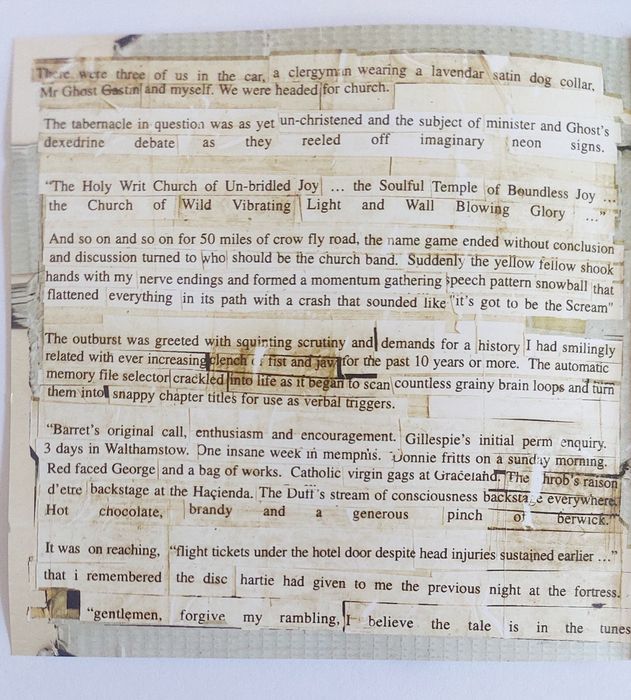 There were three of us in the car, a clergyman wearing a lavendar satin dog collar,
Mr Ghost Gastin and myself. We were headed for church.
The tabernacle in question was as yet un-christened and the subject of minister and Ghost's
dexedrine debate as they reeled off imaginary neon signs.
"The Holy Writ Church of Un-bridled Joy ... the Soulful Temple of Boundless Joy ...
the Church of Wild Vibrating Light and Wall Blowing Glory ..."
And so on and so on for 50 miles of crow fly road, the name game ended without conclusion
and discussion turned to who should be the church band. Suddenly the yellow fellow shook
hands with my nerve endings and formed a momentum gathering speech pattern snowball that
flattened everything in its path with a crash that sounded like "it's got to be the Scream"
The outburst was greeted with squinting scrutiny and demands for a history I had smilingly
related with ever increasing clench of fist and jaw for the past 10 years or more. The automatic
memory file selector crackled into life as it began to scan countless grainy brain loops and turn
them into snappy chapter titles for use as verbal triggers.
"Barret's original call, enthusiasm and encouragement. Gillespie's initial perm enquiry.
3 days in Walthamstow. One insane week in memphis. Donnie fritts on a sunday morning.
Red faced George and a bag of works. Catholic virgin gags at Graceland. The throb's raison
d'etre backstage at the Haçienda. The Duff's stream of consciousness backstage everywhere.
Hot chocolate, brandy and a generous pinch of berwick."
It was on reaching, "flight tickets under the hotel door despite head injuries sustained earlier ..."
that i remembered the disc hartie had given to me the previous night at the fortress.
"gentlemen, forgive my rambling, I believe the tale is in the tunes